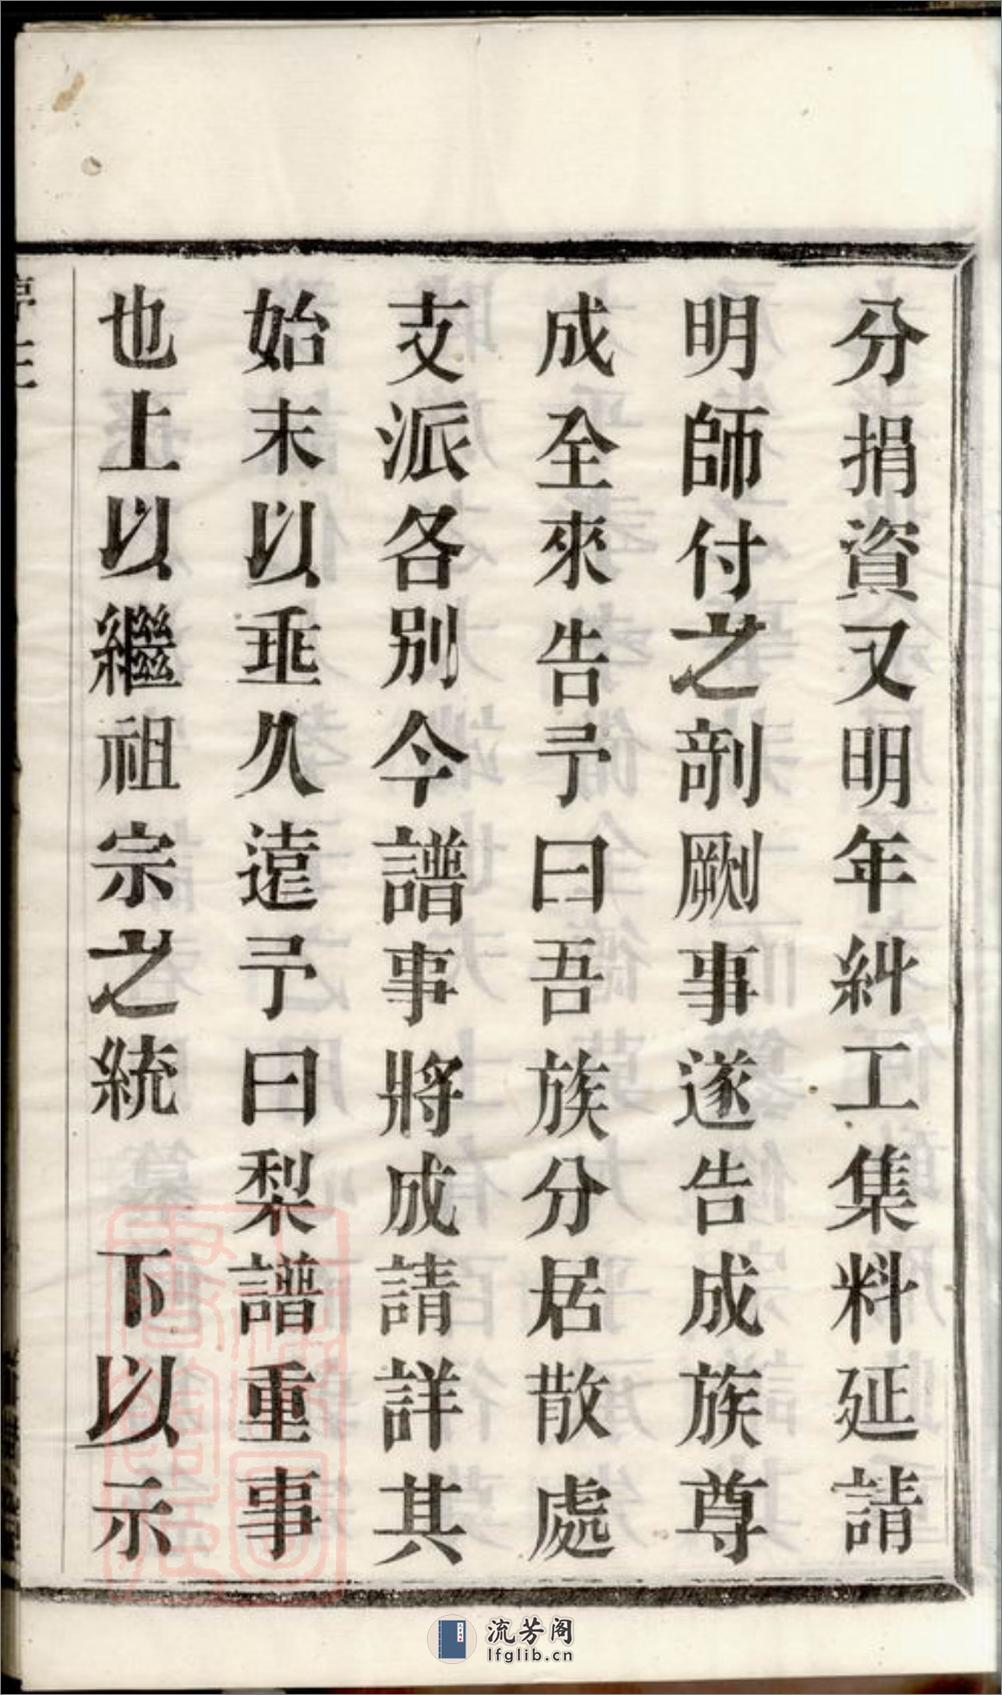 分捐資又明年糾工集料延請
明師付之剞劂事遂告成族尊
成全來告予曰吾族分居散處
支派各別今譜事將成請詳其
始末以垂久遠予曰梨譜重事
也上以繼祖宗之統　下以示
流芳阁
lfglib.cn